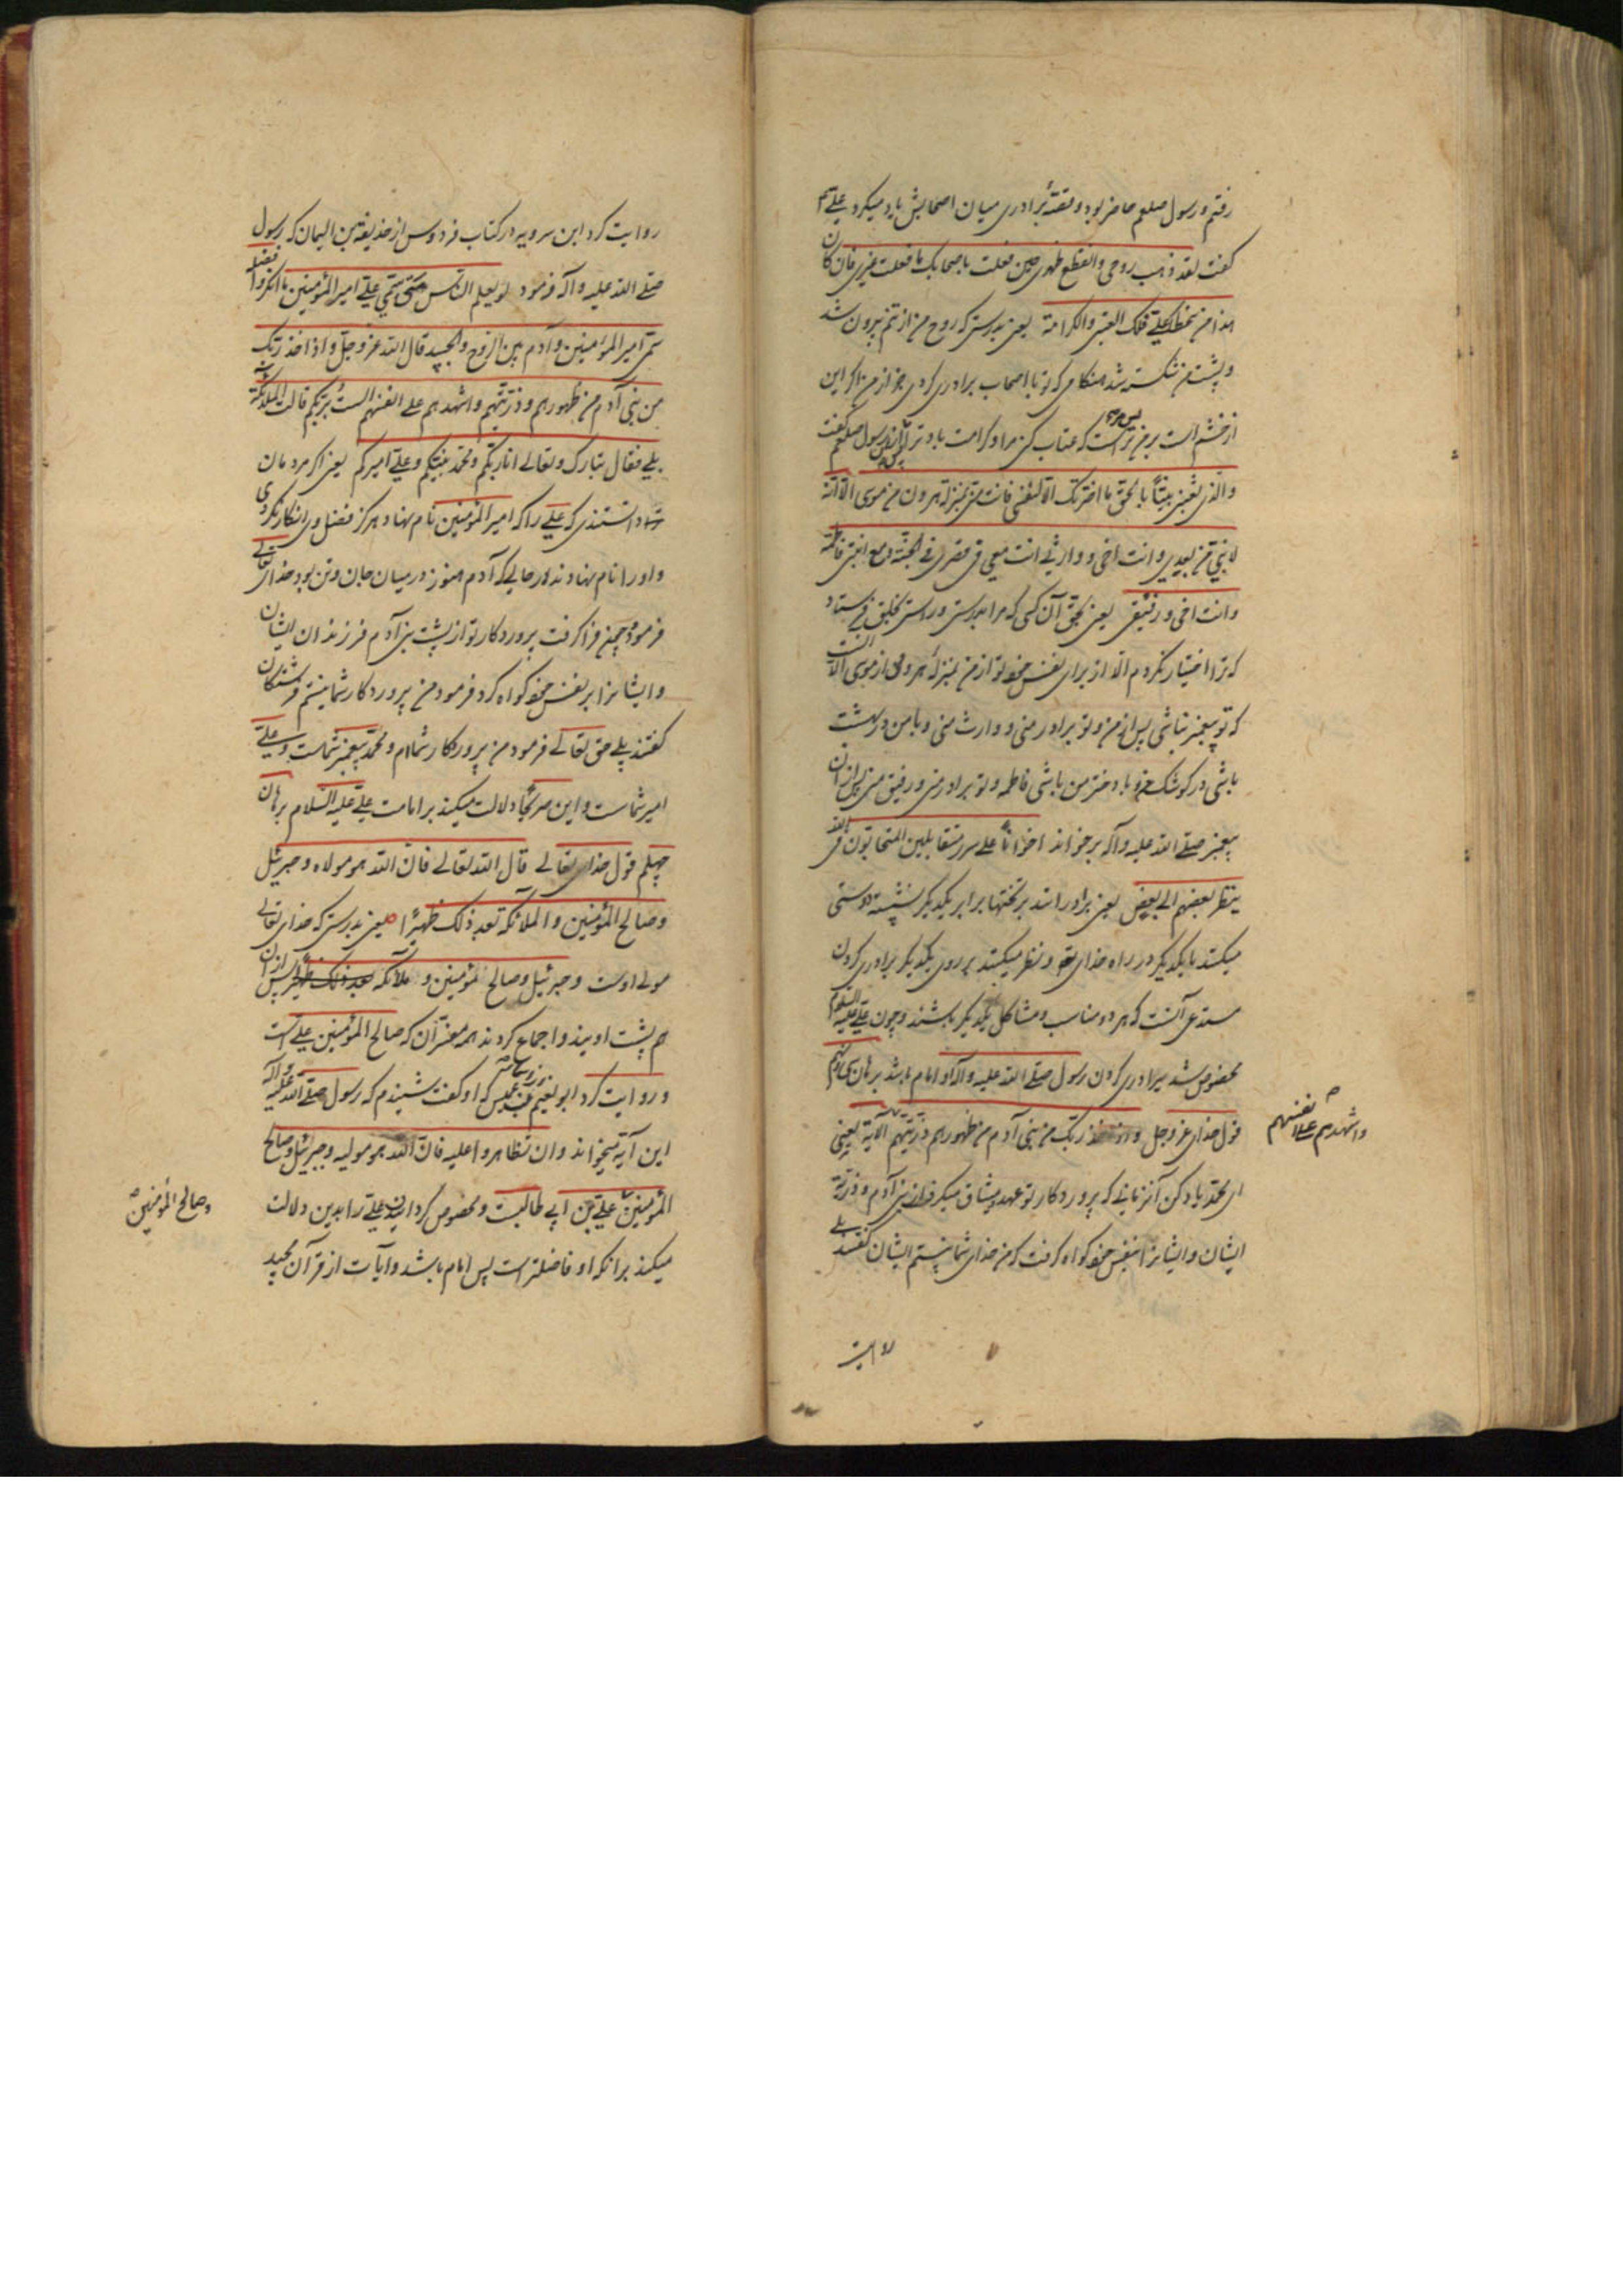 رفتم و رسول صلعم حاضر بود و قصّهٔ برادری میان اصحابش یاد میکرد علی ع
گفت لقد ذهب روحی وانقطع ظهری حین فعلت باصحابک ما فعلت بغیری فان کان
هذا من سخط علیّ فلک العتبی والکرامة یعنی بدرستی که روح من از تنم بیرون شد
و پشت من شکسته شد هنکامی که تو با اصحاب برادری کردی جز از من اکر این
از خشم است بر من تراست که عتاب کنی مرا و کرامت باد ترا پس رسول صلعم گفت
والذی بعثنی نبیّاً بالحق ما اخترتک الّا لنفسی فانت منّی بمنزلة هرون من موسی الّا انّه
لا نبیّ من بعدی وانت اخی ووارثی انت معی فی قصری فی الجنّة ومع ابنتی فاطمة
وانت اخی ورفیقی یعنی بحق آن کسی که مرا بدرستی و راستی بخلق فرستاد
که ترا اختیار نکردم الّا از برای نفس خود تو از من بمنزلهٔ هرونی از موسی الّا انست
که تو پیغمبر نباشی پس از من و تو برادر منی و وارث منی و با من در بهشت
باشی در کوشک من و با دختر من باشی فاطمه و تو برادر منی و رفیق منی پس از ان
پیغمبر صلّی الله علیه وآله برخواند اخواناً علی سرر متقابلین المتحابون فی الله
ینظر بعضهم الی بعض یعنی برادرانند بر تختها برابر یکدیکر نشسته دوستی
میکنند با یکدیکر در راه خدای تع و نظر میکنند بر روی یکدیکر برادری کردن
مستدعی آنست که هر دو مناسب و مشاکل یکدیکر باشند و چون علی علیه السلام
مخصوص شد ببرادری کردن رسول صلّی الله علیه وآله او امام باشد برهان سی ونهم
قول خدای عز وجل واذ اخذ ربک من بنی آدم من ظهورهم ذریّتهم الآیة یعنی
واشهدهم علی انفسهم
ای محمّد یاد کن آنزمانی که پروردکار تو عهد و میثاق میکرفت از بنی آدم و ذرّیّة
ایشان و ایشانرا بنفس خود کواه کرفت که من خدای شما نیستم ایشان گفتند بلی
روایت
روایت کرد ابن سرویه در کتاب فردوس از حذیفة بن الیمان که رسول
صلّی الله علیه وآله فرمود لو یعلم الناس متی سمّی علیّ امیر المؤمنین ما انکروا فضله
سمّی امیر المؤمنین وآدم بین الروح والجسد قال الله عز وجل واذ اخذ ربک
من بنی آدم من ظهورهم وذرّیّتهم واشهدهم علی انفسهم الست بربکم قالت الملائکة
بلی فقال تبارک وتعالی انا ربّکم ومحمّد نبیّکم وعلیّ امیرکم یعنی اکر مردمان
دانستندی که علی را کی امیر المؤمنین نام نهاد هرکز فضل وی انکار نکردی
و او را نام نهادند در حالی که آدم هنوز در میان جان و تن بود خدای تعالی
فرمود چون فرا کرفت پروردکار تو از پشت بنی آدم فرزندان ایشان
و ایشانرا بر نفس خود کواه کرد فرمود من پروردکار شما نیستم فرشتکان
کفتند بلی حق تعالی فرمود من پروردکار شماام و محمّد پیغمبر شماست و علی
امیر شماست و این صریحاً دلالت میکند بر امامت علی علیه السّلام برهان
چهلم قول خدای تعالی قال الله تعالی فان الله هو مولاه وجبرئیل
وصالح المؤمنین والملائکة بعد ذلک ظهیراً یعنی بدرستی که خدای تعالی
مولی اوست و جبرئیل و صالح مؤمنین و ملائکه پس از ان
هم پشت اویند و اجماع کردند همه مفسّران که صالح المؤمنین علی است
و روایت کرد ابو نعیم از اسماء بنت عمیس که او کفت شنیدم که رسول صلّی الله علیه وآله
این آیة میخواند وان تظاهرا علیه فان الله هو مولیه وجبرئیل وصالح
المؤمنین علی بن ابی طالبست و مخصوص کردانیدن علی را بدین دلالت
وصالح المؤمنین
میکند برانکه او فاضلتر است پس امام باشد و آیات از قرآن مجید